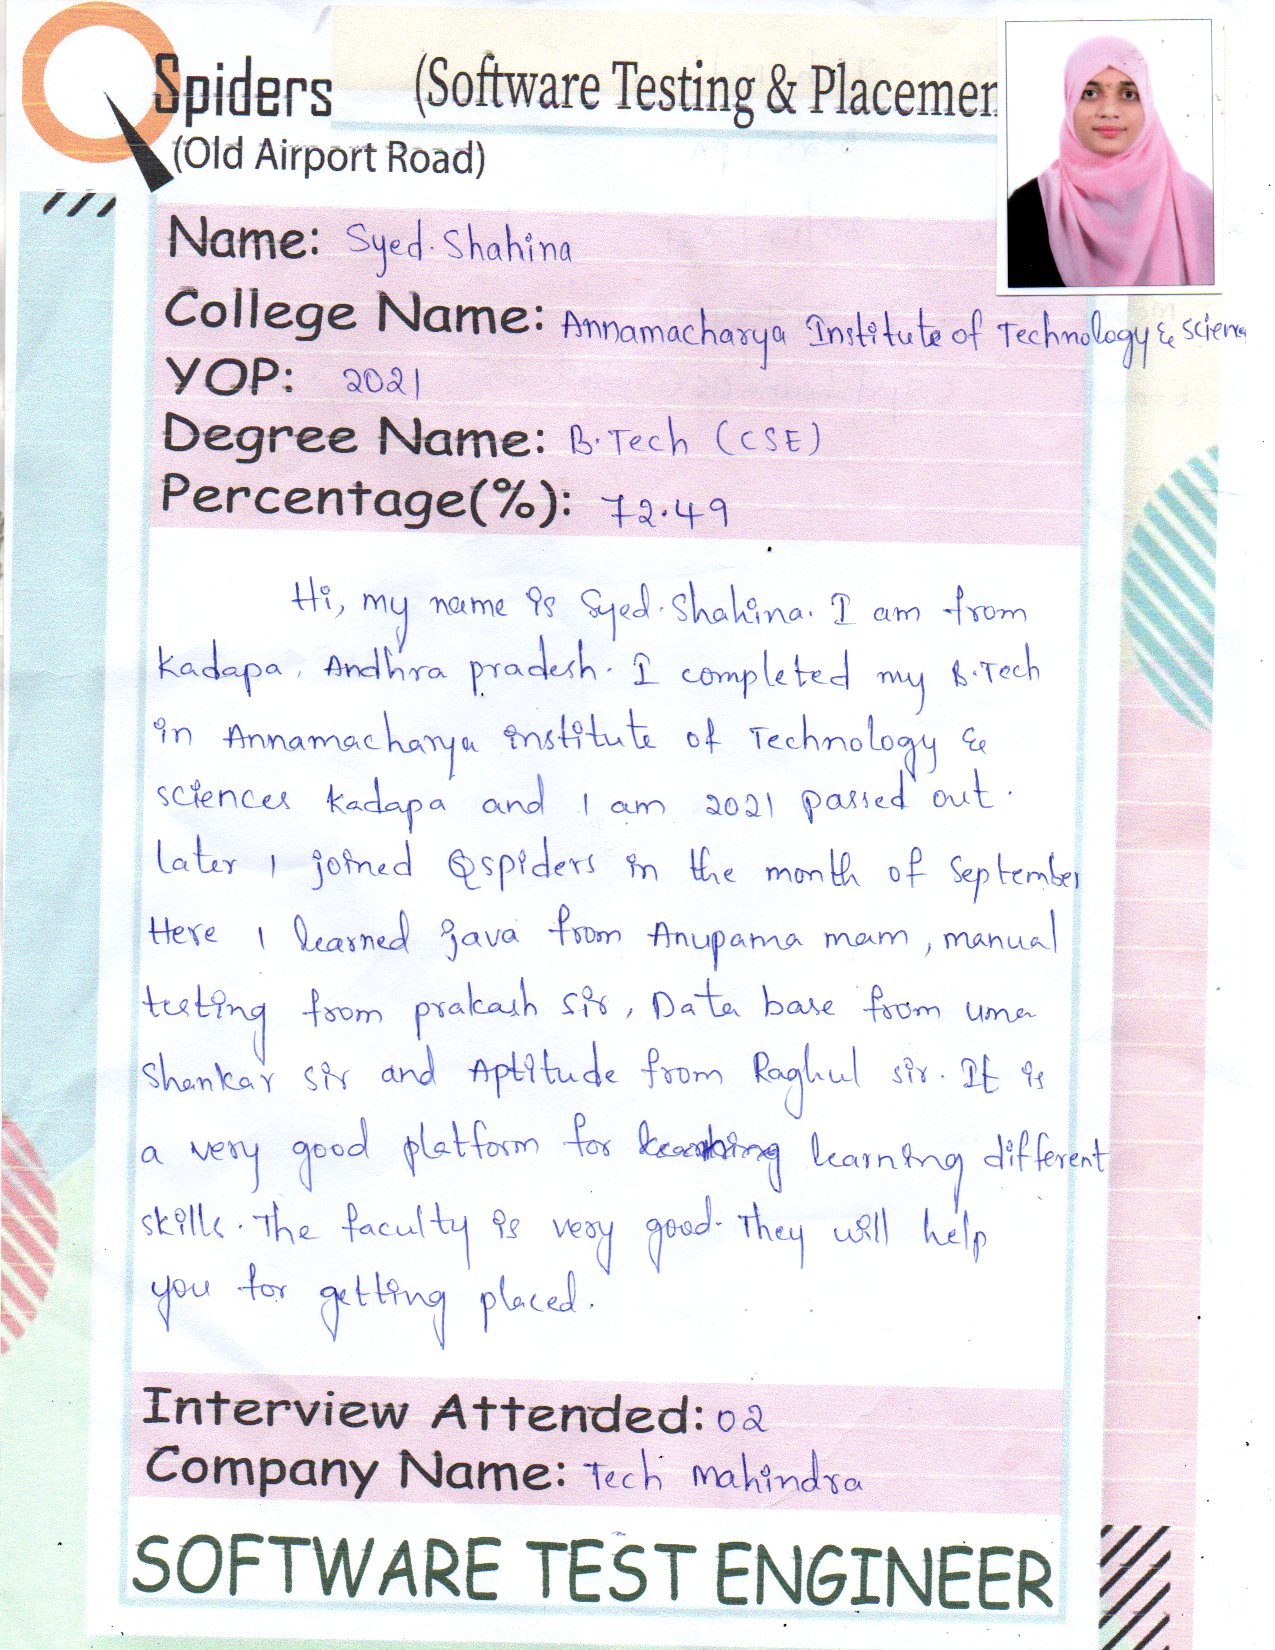 QSpiders (Software Testing & Placemen
(Old Airport Road)
Name: Syed. Shahina
College Name: Annamacharya Institute of Technology & Scienc
YOP: 2021
Degree Name: B.Tech (CSE)
Percentage(%): 72.49
Hi, my name is Syed. Shahina. I am from
Kadapa, Andhra pradesh. I completed my B.Tech
in Annamacharya institute of Technology &
sciences Kadapa and I am 2021 passed out.
Later I joined Qspiders in the month of September
Here I learned Java from Anupama mam, manual
testing from prakash sir, Data base from uma
Shankar sir and Aptitude from Raghul sir. It is
a very good platform for learning different
skills. The faculty is very good. They will help
you for getting placed.
Interview Attended: 02
Company Name: Tech Mahindra
SOFTWARE TEST ENGINEER